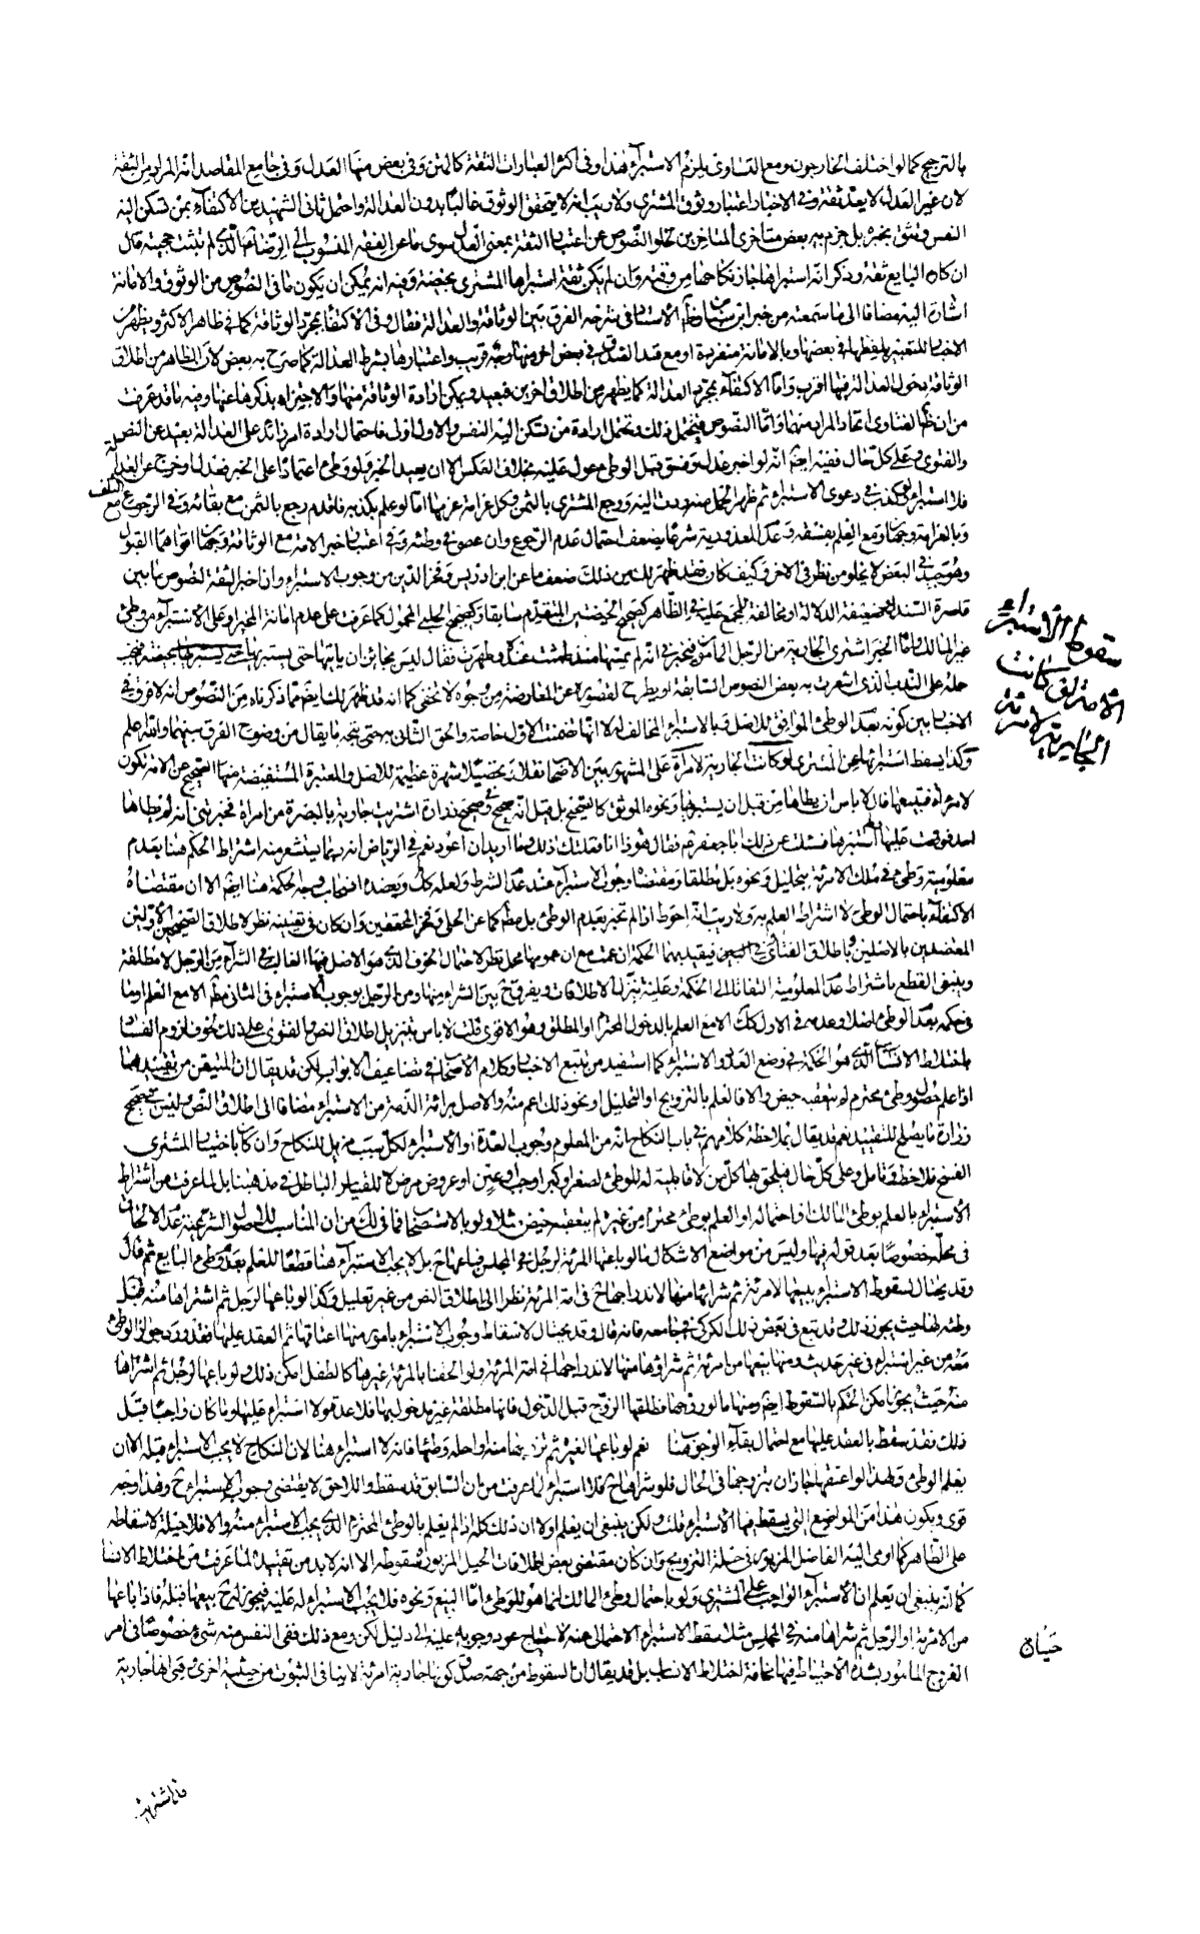 بالترجيح كما لو اختلف الخارجون ومع التساوى يلزم الاستبرآء هذا وفى اكثر العبارات الثقة كالمتن وفى بعض منها العدل وفى جامع المقاصد انه المراد من الثقة
لان غير العدل لا يعد ثقة وفى الاخبار اعتبار وثوق المشترى ولا ريب انه لا يتحقق الوثوق غالبا بدون العدالة واحتمل ثانى الشهيدين الاكتفآء بمن تسكن اليه
النفس وتثق بخبره بل جزم به بعض متاخرى المتاخرين لخلو النصوص عن اعتبار الثقة بمعنى العدل سوى ما عن الفقه المنسوب الى الرضا الذى لم تثبت حجيته قال
ان كان البايع ثقة وذكر انه استبراها جاز نكاحها من وقته وان لم يكن ثقة استبراها المشترى بحيضة وفيه انه يمكن ان يكون ما فى النصوص من الوثوق والامانة
اشارة اليه مضافا الى ما سمعته من خبر ابن سنان الاستاد فى شرحه الفرق بين الوثاقة والعدالة فقال وفى الاكتفاء بمجرد الوثاقة كما فى ظاهر الاكثر ويظهر من
الاخبار للتعبير بلفظها فى بعضها وبالامانة منفردة او مع قيد الصدق فى بعض اخر منها وجه قريب واعتبارها بشرط العدالة كما صرح به بعض لان الظاهر من اطلاق
الوثاقة دخول العدالة فيها اقرب واما الاكتفاء بمجرد العدالة كما يظهر من اطلاق اخرين فبعيد ويمكن ارادة الوثاقة منها والاجتزاء بذكرها عنها وفيه ما قد عرفت
من ان ظاهر الفتاوى اتحاد المراد منهما واما النصوص فتحتمل ذلك وتحتمل ارادة من تسكن اليه النفس والاول اولى فاحتمال ارادة امر زائد على العدالة بعيد عن النص
والفتوى وعلى كل حال ففيه ايضا انه لو اخبر عدل وفسق قبل الوطى عول عليه بخلاف العكس الا ان يعيد الخبر ولو وطى اعتمادا على الخبر فعدل او خرج عن العدالة
فلا استبراء ولو كذب فى دعوى الاستبراء ثم ظهر الحمل منه ردت اليه ورجع المشترى بالثمن وبكل غرامة غرمها اما لو علم بكذبه فاقدم رجع بالثمن مع بقائه وفى الرجوع مع التلف
وبالغرامة وجهان ومع العلم بفسقه وعدم المعذورية شرعا يضعف احتمال عدم الرجوع وان عصى فى وطئه وفى اعتبار خبر الامة مع الوثاقة وجهان اقواهما القبول
وهو جيد فى البعض لا يخلو من نظر فى الاخر وكيف كان فقد ظهر لك من ذلك ضعف ما عن ابن ادريس وفخر الدين من وجوب الاستبراء وان اخبر الثقة لنصوص ما بين
قاصرة السند وضعيفة الدلالة او مخالفة للمجمع عليه فى الظاهر كصحيح الحيضتين المتقدم سابقا وكصحيح الحلبى المحمول كما عرفت على عدم امانة المخبر او على الاستبراء من وطى
غير المالك واما الخبر اشترى الجارية من الرجل المامون فيخبرنى انه لم يمسها منذ طمثت عنده وطهرت فقال ليس بجائز ان ياتيها حتى يستبرئها بحيضة فيجب
حمله على الندب الذى اشعرت به بعض النصوص السابقة او يطرح لقصوره عن المعارضة من وجوه لا تخفى كما انه قد ظهر لك ايضا مما ذكرناه من النصوص انه لا فرق فى
الاخبار بين كونه بعدم الوطى الموافق للاصل وبالاستبراء المخالف له لانها ضمنت الاول خاصة والحق الثانى به حتى يتجه ما يقال من وضوح الفرق بينهما والله اعلم
وكذا يسقط استبرآئها عن المشترى لو كانت الجارية لامرأة على المشهور بين الاصحاب نقلا وتحصيلا شهرة عظيمة للاصل وللمعتبرة المستفيضة منها الصحيح عن الامة تكون
لامراة فتبيعها قال لا باس ان يطاها من قبل ان يستبرئها ونحوه الموثق كالصحيح بل قيل انه صحيح وصحيح زرارة اشتريت جارية بالبصرة من امراة فخبرتنى انه لم يطاها
احد فوقعت عليها ولم استبرئها فسئلت عن ذلك ابا جعفر ع فقال هو ذا انا قد فعلت ذلك وما اريد ان اعود نعم فى الرياض انه ربما يستشعر منه اشتراط الحكم هنا بعدم
معلومية وطى فى ملك الامرئة بتحليل ونحوه بل مطلقا ومقتضاه وجوب الاستبراء عند عدم الشرط ولعله كك ويعضده انسحاب وجه الحكمة هنا ايضا الا ان مقتضاه
الاكتفاء باحتمال الوطى لا اشتراط العلم به ولا ريب انه احوط اذا لم تخبر بعدم الوطى بل مط كما عن الحلى وفخر المحققين وان كان فى تعيينه نظر لاطلاق الصحيحين الاولين
المعتضدين بالاصلين وباطلاق الفتاوى فى البين فيقيد بهما الحكمة ان عمت مع ان عمومها محل نظر لاحتمال الحرف الذى هو الاصل فيها الغالب فى الشراء من الرجل لا مطلقة
وينبغى القطع باشتراط عدم المعلومية التفاتا الى الحكمة وعليه تنزل الاطلاقات ويفرق ح بين الشراء منها ومن الرجل بوجوب الاستبراء فى الثانى مط الا مع العلم او ما
فى حكمه بعدم الوطى اصلا وعدمه فى الاول كك الا مع العلم بالدخول المحترم او المطلق وهو الاقوى قلت لا باس بتنزيل اطلاق النص والفتوى على ذلك لخوف لزوم الفساد
باختلاط الانساب الذى هو الحكمة فى وضع العدة والاستبراء كما استفيد من تتبع الاخبار وكلام الاصحاب فى تضاعيف الابواب لكن قد يقال ان المتيقن من تقييدهما
اذا علم حصول وطى محترم لم يتعقبه حيض والا فالعلم بالتزويج او التحليل او نحو ذلك اعم منه والاصل برائة الذمة من الاستبراء مضافا الى اطلاق النص وليس فى صحيح
زرارة ما يصلح للتقييد نعم قد يقال بملاحظة كلامهم فى باب النكاح انه من المعلوم وجوب العدة او الاستبراء لكل سبب مزيل للنكاح وان كان باختيار المشترى
الفسخ فلاحظ وتامل وعلى كل حال فيلحق بها كل من لا قابلية له للوطى لصغر او كبر او جب او عنن او عروض مرض لا للقياس الباطل فى مذهبنا بل لما عرفت من اشتراط
الاستبراء بالعلم بوطى المالك او احتماله او العلم بوطى محترم من غيره لم يتعقبه حيض مثلا ولو بالاستصحاب فما فى لك من ان المناسب للاصول الشرعية عدم الالحاق
فى محله خصوصا بعد قوله فيها وليس من مواضع الاشكال ما لو باعها المرئة لرجل فى المجلس فباعها ح بل لا يجب الاستبرآء هنا قطعا للعلم بعدم وطى البايع ثم قال
وقد يحتال لسقوط الاستبراء ببيعها لامرئة ثم شرائها منها لاندراجها ح فى امة المرئة نظرا الى اطلاق النص من غير تعليل وكذا لو باعها لرجل ثم اشتراها منه قبل
وطئه لها حيث يجوز ذلك وقد تبع فى بعض ذلك الكركى فى جامعه فانه قال وقد يحتال لاسقاط وجوب الاستبراء بامور منها اعتاقها ثم العقد عليها فقد ورد جواز الوطى
معه من غير استبراء فى غير حديث ومنها بيعها من امرئة ثم شراؤها منها لاندراجها فى امة المرئة ولو الحقنا بالمرئة غيرها كالطفل امكن ذلك ولو باعها لرجل ثم اشتراها
منه حيث يجوز امكن الحكم بالسقوط ايضا ومنها ما لو زوجها فطلقها الزوج قبل الدخول فانها مطلقة غير مدخول بها فلا عدة ولا استبراء عليها وما كان واجبا قبل
ذلك فقد سقط بالعقد عليها مع احتمال بقاء الوجوب هنا نعم لو باعها لغيره ثم تزوجها منه واحل له وطئها فانه لا استبراء هنا لان النكاح لا يجب الاستبراء قبله الا ان
يعلم الوطى ولهذا لو اعتقها جاز ان يتزوجها فى الحال فلو شراها ح فلا استبراء لما عرفت من ان السابق قد سقط واللاحق لا يقتضى وجوب الاستبراء ح وهذا وجه
قوى ويكون هذا من المواضع التى يسقط فيها الاستبراء قلت ولكن ينبغى ان يعلم اولا ان ذلك كله اذا لم يعلم بالوطى المحترم الذى يجب الاستبراء منه والا فلا حيلة لاسقاطه
على الظاهر كما اومى اليه الفاضل المزبور فى حيلة التزويج وان كان مقتضى بعض اطلاقات الحيل المزبورة سقوطه الا انه لا بد من تقييده لما عرفت من اختلاط الانساب
كما انه ينبغى ان يعلم ان الاستبرآء الواجب على المشترى ولو باحتمال وطى المالك انما هو للوطى اما البيع ونحوه فلا يجب الاستبراء له عليه فيجوز له ح بيعها قبله فاذا باعها
من الامرئة او الرجل ثم شراها منه فى المجلس مثلا سقط الاستبراء الاحتمالى عنه لاحتياج عود وجوبه عليه الى دليل لكن ومع ذلك ففى النفس منه شىء خصوصا فى امر
الفروج المامور بشدة الاحتياط فيها مخافة اختلاط الانساب بل قد يقال ان السقوط من جهة صدق كونها جارية امرئة لا ينافى الثبوت من حيثية اخرى وهى انها جارية
سقوط الاستبراء
الامة لو كانت
الجارية لامرئة
حيان
فاشتريها